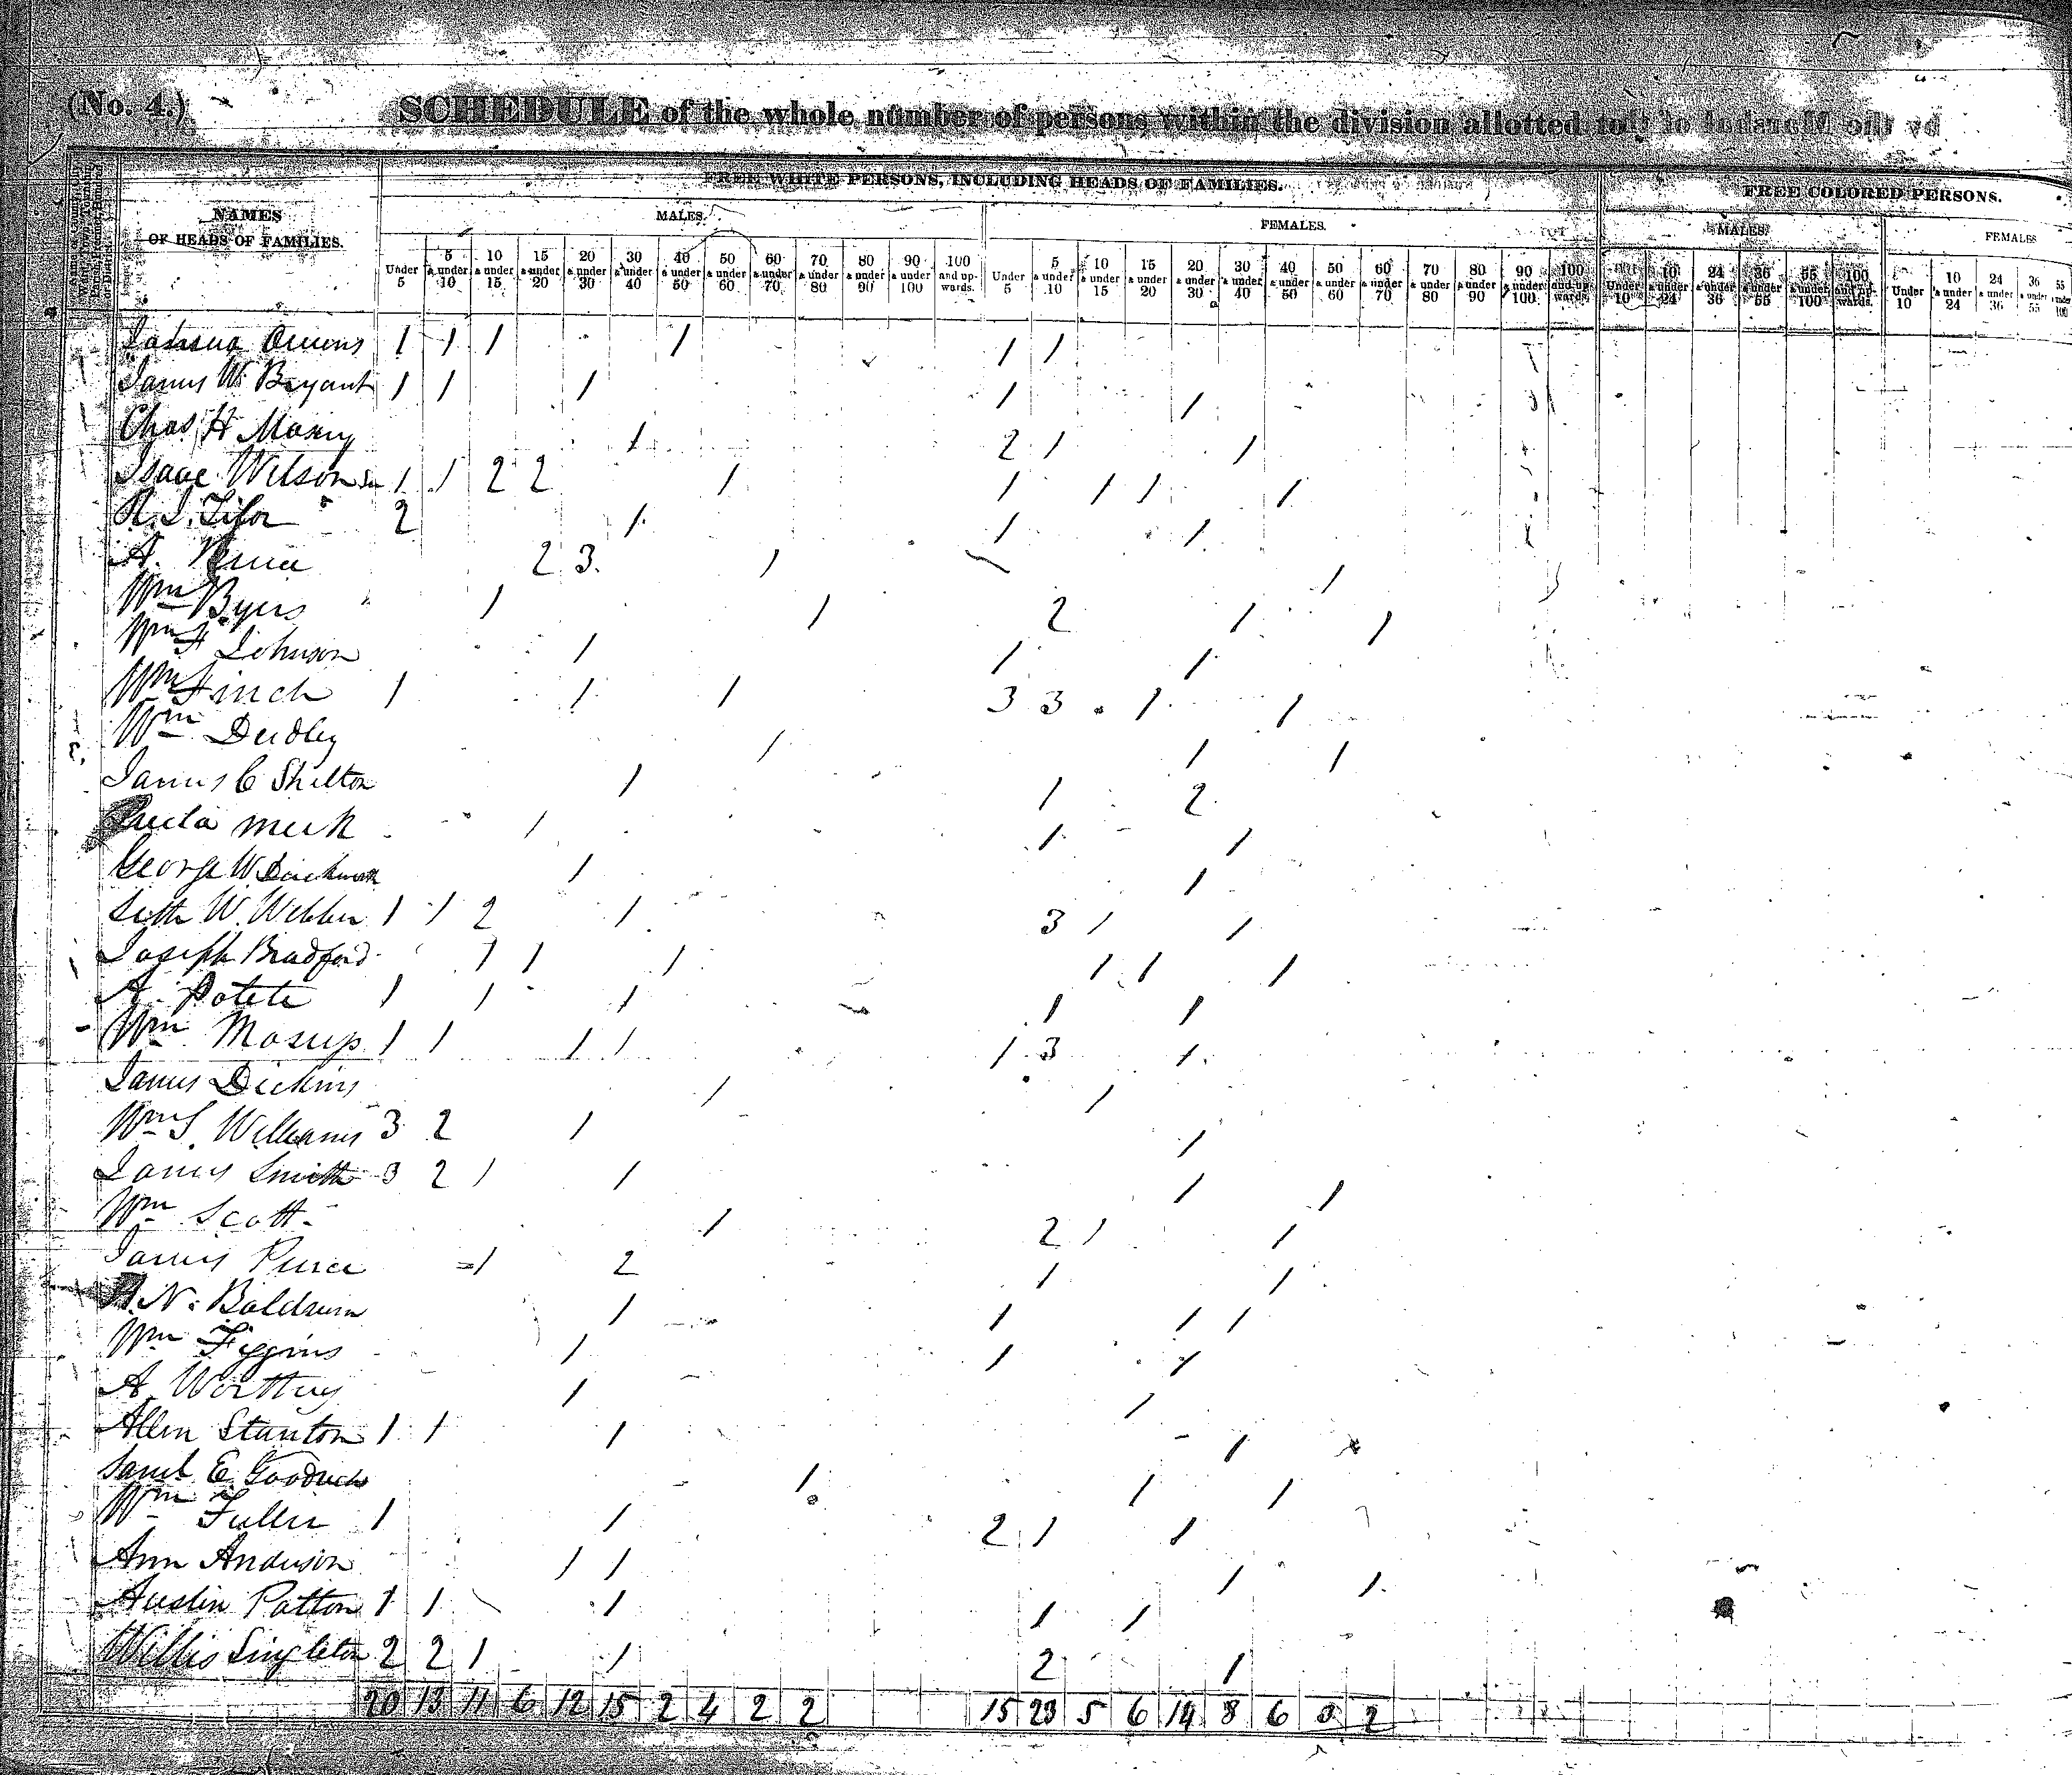 (No. 4.) SCHEDULE of the whole number of persons within the division allotted to by the Marshal of
NAMES OF HEADS OF FAMILIES.
FREE WHITE PERSONS, INCLUDING HEADS OF FAMILIES.
FREE COLORED PERSONS.
MALES. FEMALES. MALES. FEMALES
Under 5 5 & under 10 10 & under 15 15 & under 20 20 & under 30 30 & under 40 40 & under 50 50 & under 60 60 & under 70 70 & under 80 80 & under 90 90 & under 100 100 and upwards. Under 5 5 & under 10 10 & under 15 15 & under 20 20 & under 30 30 & under 40 40 & under 50 50 & under 60 60 & under 70 70 & under 80 80 & under 90 90 & under 100 100 and upwards. Under 10 10 & under 24 24 & under 36 36 & under 55 55 & under 100 100 and upwards. Under 10 10 & under 24 24 & under 36 36 & under 55 55 & under 100
Owens 1 1 1 1 1 1
James W. Bryant 1 1 1 1 1
Chas H Maxey 1 2 1 1
Isaac Wilson Sen 1 1 2 2 1 1 1 1 1
2 1 1 1
A. 2 3 1 1
Wm Byers 1 1 2 1 1
Wm H Johnson 1 1 1
Wm Finch 1 1 1 3 3 1 1
Wm Dudley 1 1 1
James C Shelton 1 1 2
Meek 1 1 1
George W Duckworth 1 1
Seth W. Webber 1 1 2 1 3 1 1
Joseph Bradford 1 1 1 1 1 1
A. Potete 1 1 1 1 1
Wm Mosup 1 1 1 1 1 3 1
James Dickins 1 1
Wm S. Williams 3 2 1 1
James Smith 3 2 1 1 1 1
Wm Scott 1 2 1 1
James Pierce 1 2 1 1
N. Baldwin 1 1 1 1
Wm Figgins 1 1 1
A Worthey 1 1
Allen Stanton 1 1 1 1
Saml E. Goodrich 1 1 1
Wm Fuller 1 1 2 1 1
Ann Anderson 1 1 1 1
Austin Patton 1 1 1 1 1
Willis Singleton 2 2 1 1 2 1
20 13 11 6 12 15 2 4 2 2 15 23 5 6 14 8 6 3 2